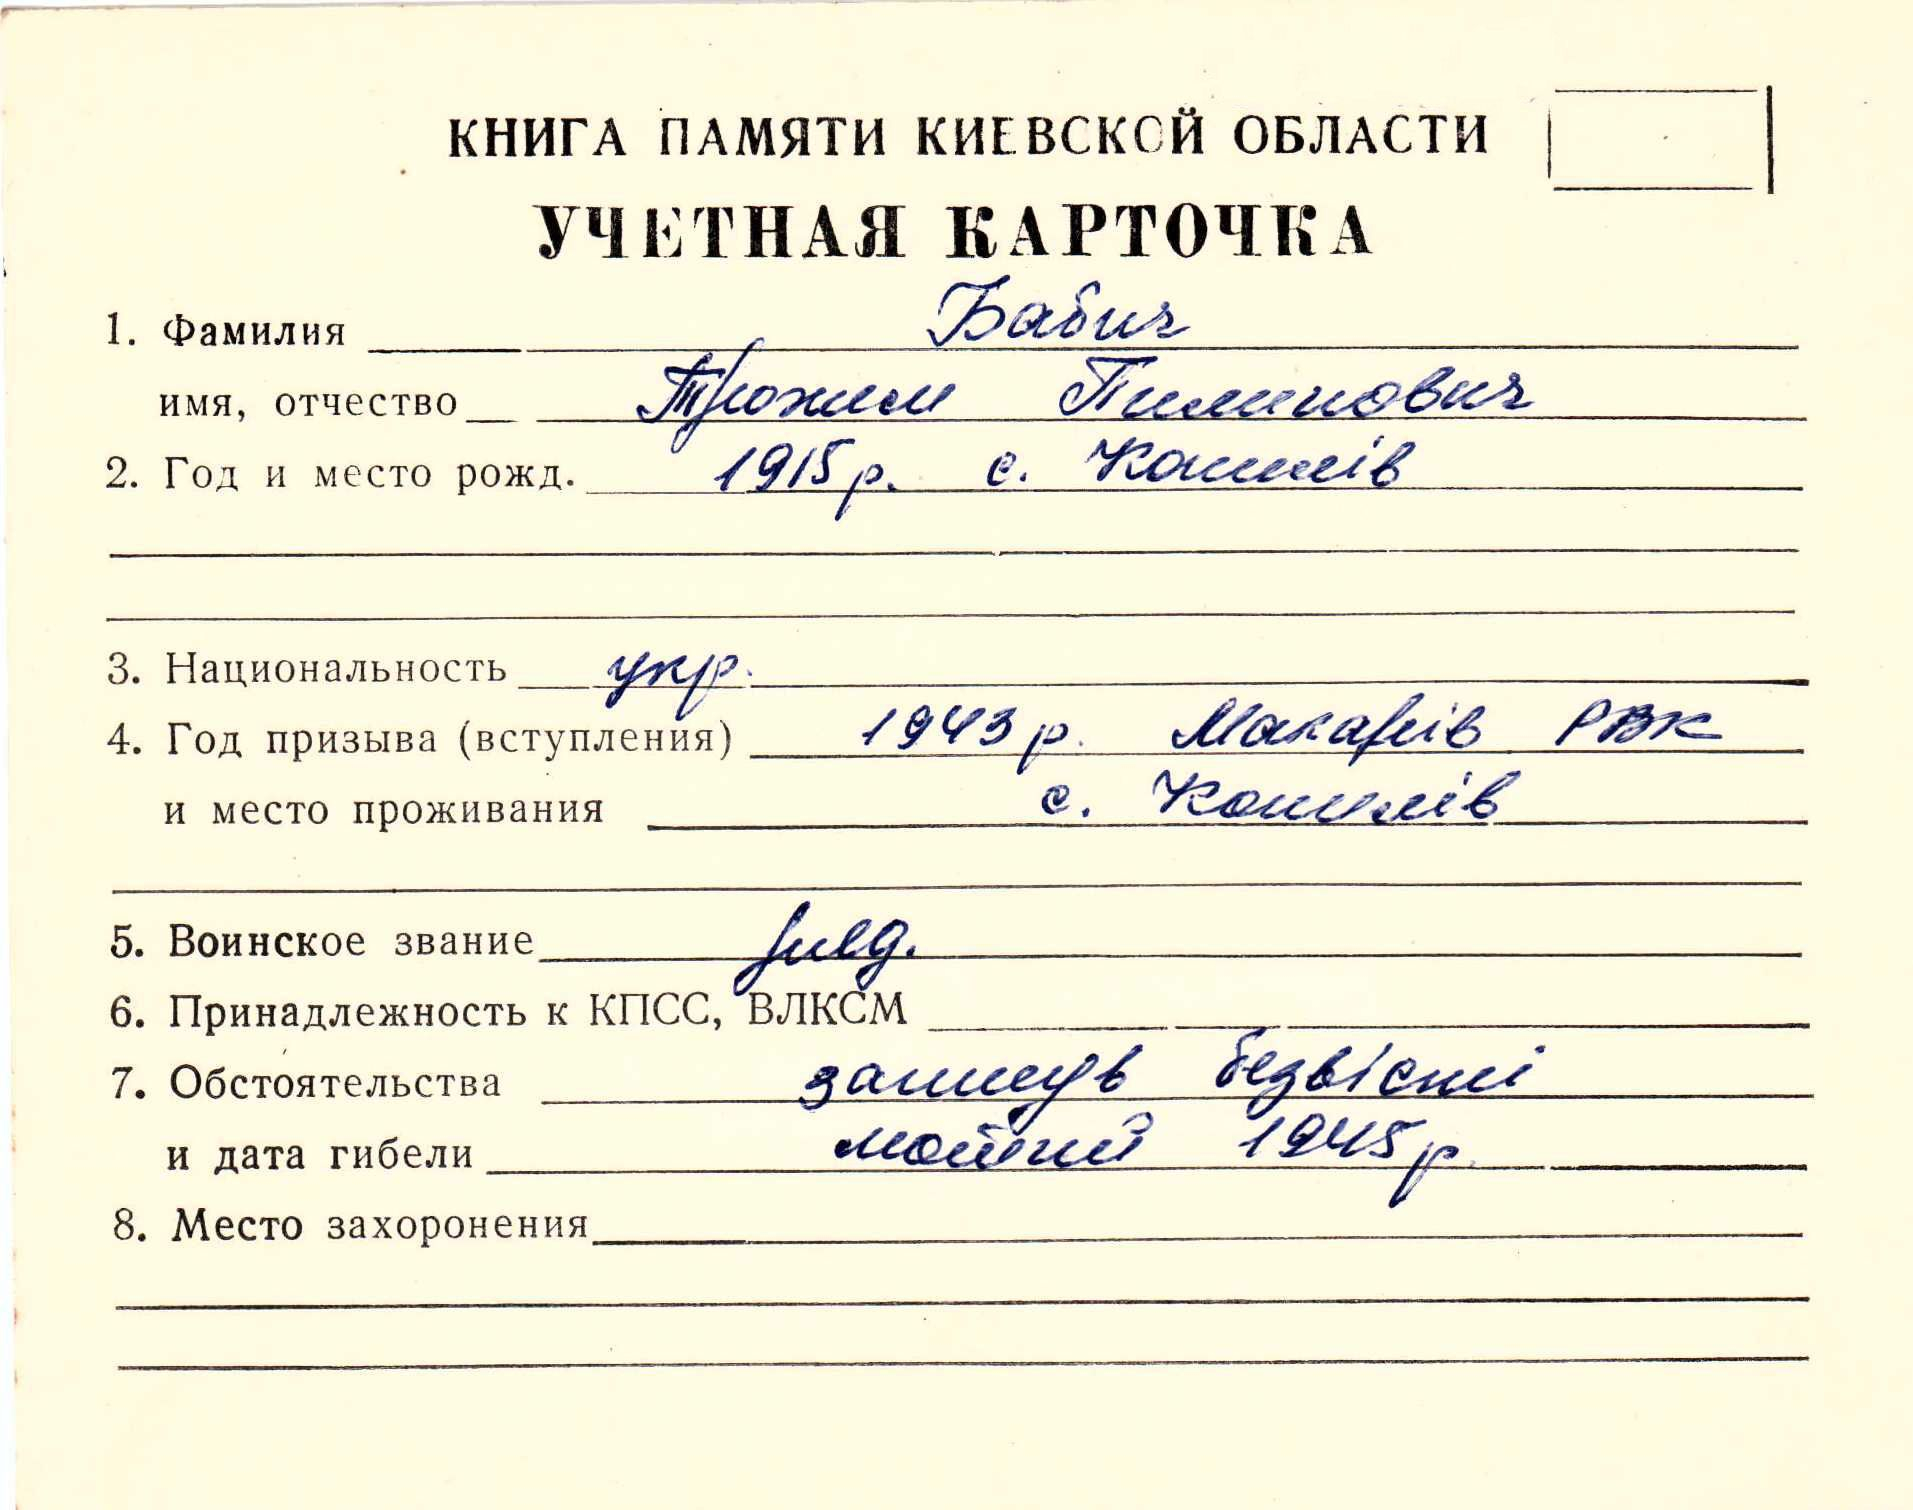 КНИГА ПАМЯТИ КИЕВСКОЙ ОБЛАСТИ
УЧЕТНАЯ КАРТОЧКА
1. Фамилия Бабич
имя, отчество Трохим Пилипович
2. Год и место рожд. 1915 р. с. Копилів
3. Национальность укр.
4. Год призыва (вступления) 1943 р. Макарів РВК
и место проживания с. Копилів
5. Воинское звание
6. Принадлежность к КПСС, ВЛКСМ
7. Обстоятельства безвісті
и дата гибели 1945 р.
8. Место захоронения